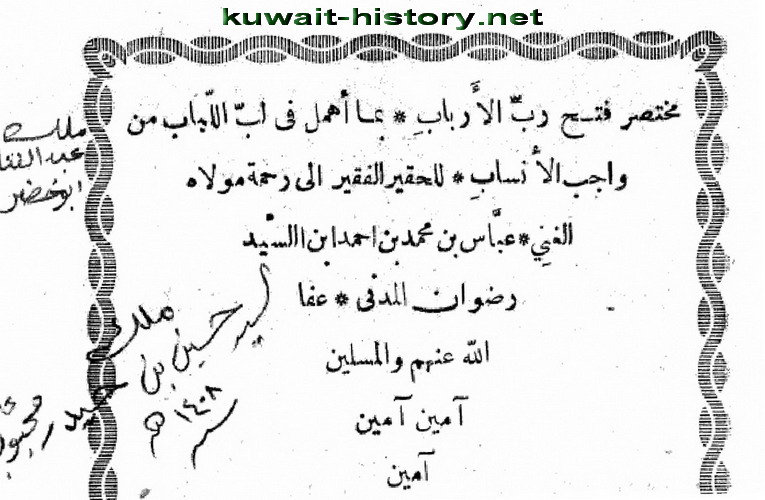 kuwait-history.net
مختصر فتح ربّ الأَربابِ * بما أهمل فى لبّ اللّباب من
واجب الأنسابِ * للحقير الفقير الى رحمة مولاه
الغنِي * عبّاس بن محمد بن احمد ابن االسّيد
رضوان المدنى * عفا
الله عنهم والمسلين
آمين آمين
آمين
ملك
ابو خضر
ملك
السيد حسين بن حيدر
١٤٠٨ هـ